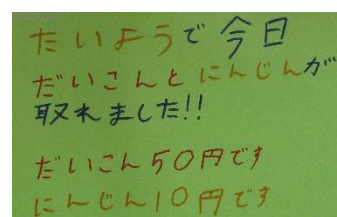 たいようで今日
だいこんとにんじんが
取れました!!
だいこん50円です
にんじん10円です